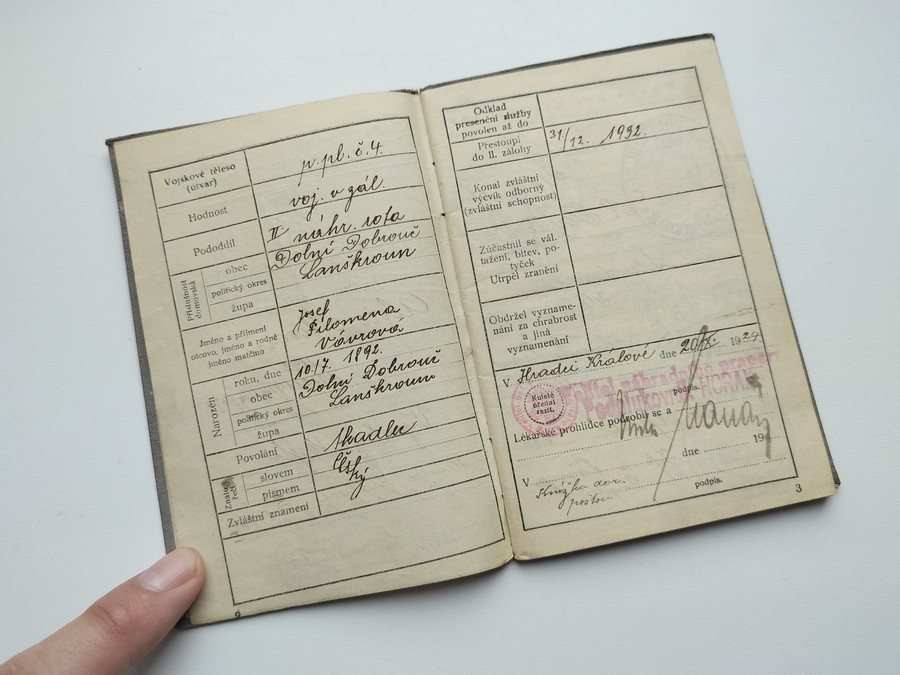 Vojskové těleso
(útvar)
p. pl. č. 4.
Hodnost
voj. v zál.
Pododdíl
II náhr. rota
Příslušnost
domovská
obec
Dolní Dobrouč
politický okres
Lanškroun
župa
Jméno a příjmení
otcovo, jméno a rodné
jméno matčino
Josef
Filomena
Vávrova
Narozen
roku, dne
10./7. 1892.
obec
Dolní Dobrouč
politický okres
Lanškroun
župa
Povolání
tkadlec
Znalost
řeči
slovem
písmem
Český
Zvláštní znamení
Odklad
presenční služby
povolen až do
Přestoupí
do II. zálohy
31/12. 1932.
Konal zvláštní
výcvik odborný
(zvláštní schopnost)
Zúčastnil se vál.
tažení, bitev, po-
tyček
Utrpěl zranění
Obdržel vyzname-
nání za chrabrost
a jiná
vyznamenání
V Hradci Králové dne 1924.
Kulaté
úřední
raz.
podpis.
Lékařské prohlídce podrobil se a
dne 192
V
podpis.
Knížka dor.
poštou
3